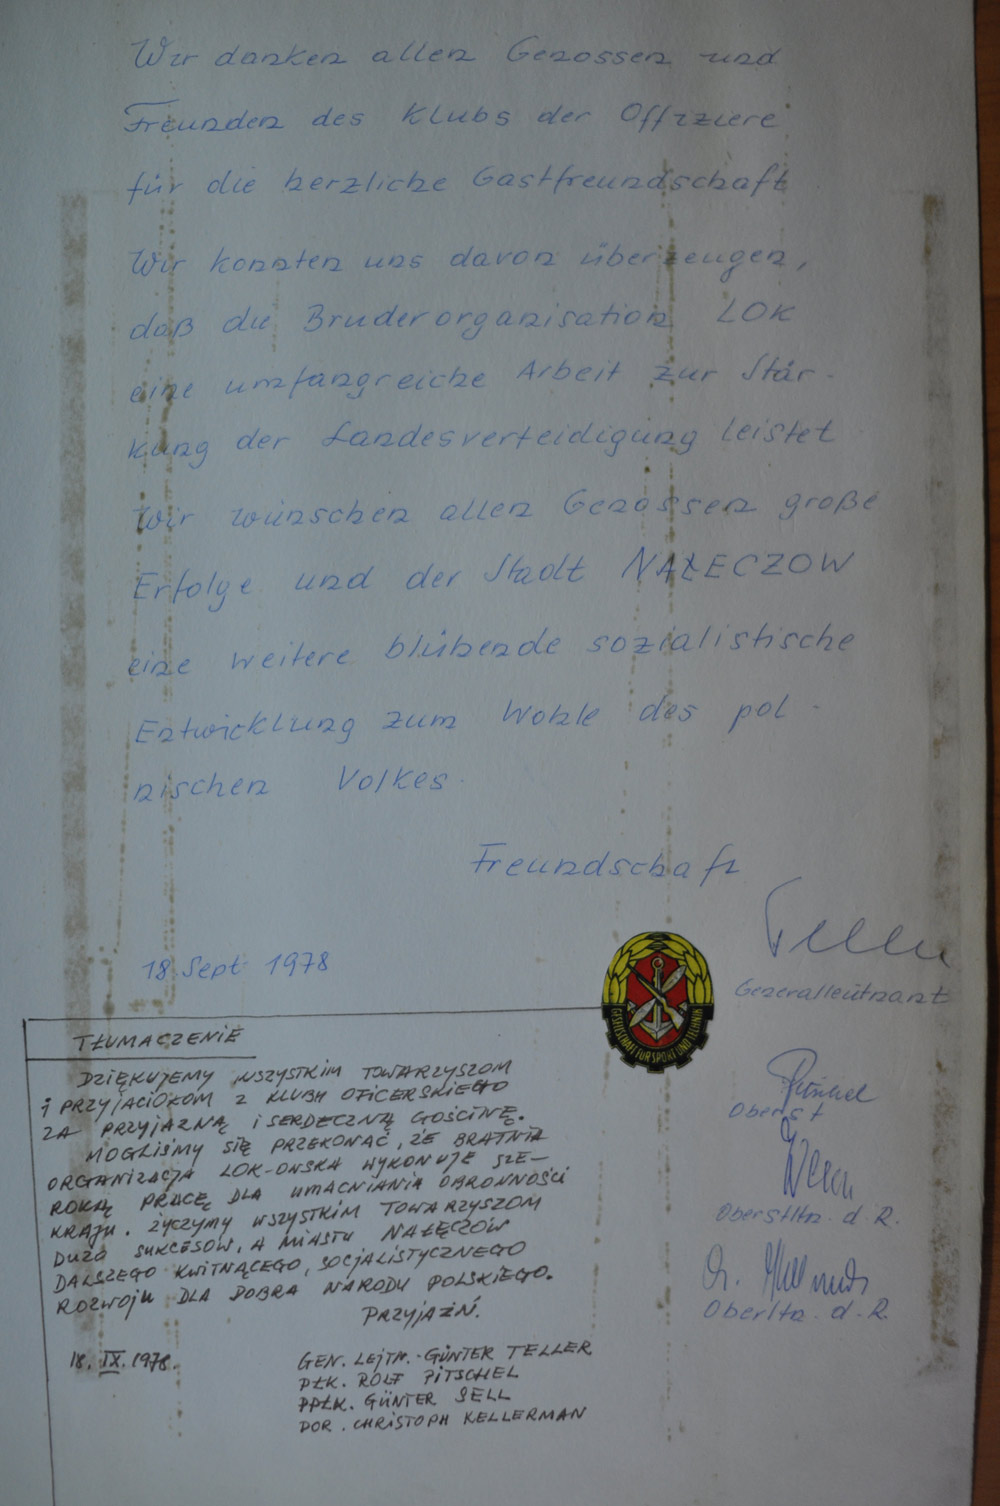 Wir danken allen Genossen und
Freunden des Klubs der Offiziere
für die herzliche Gastfreundschaft
Wir konnten uns davon überzeugen,
daß die Bruderorganisation LOK
eine umfangreiche Arbeit zur Stär-
kung der Landesverteidigung leistet
Wir wünschen allen Genossen große
Erfolge und der Stadt NAŁECZOW
eine weitere blühende sozialistische
Entwicklung zum Wohle des pol-
nischen Volkes.
Freundschaft
Teller
18 Sept 1978
GESELLSCHAFT FÜR SPORT UND TECHNIK
Generalleutnant
Oberst
Oberstltn. d. R.
Oberltn. d. R.
TŁUMACZENIE
DZIĘKUJEMY WSZYSTKIM TOWARZYSZOM
i PRZYJACIOŁOM Z KLUBU OFICERSKIEGO
ZA PRZYJAZNĄ i SERDECZNĄ GOŚCINĘ.
MOGLIŚMY SIĘ PRZEKONAĆ, ŻE BRATNIA
ORGANIZACJA LOK-OWSKA WYKONUJE SZE-
ROKĄ PRACĘ DLA UMACNIANIA OBRONNOŚCI
KRAJU. ŻYCZYMY WSZYSTKIM TOWARZYSZOM
DUŻO SUKCESÓW, A MIASTU NAŁĘCZÓW
DALSZEGO KWITNĄCEGO, SOCJALISTYCZNEGO
ROZWOJU DLA DOBRA NARODU POLSKIEGO.
PRZYJAŹŃ.
18. IX. 1978.
GEN. LEJTN. GÜNTER TELLER
PŁK. ROLF PITSCHEL
PPŁK. GÜNTER SELL
DOR. CHRISTOPH KELLERMAN